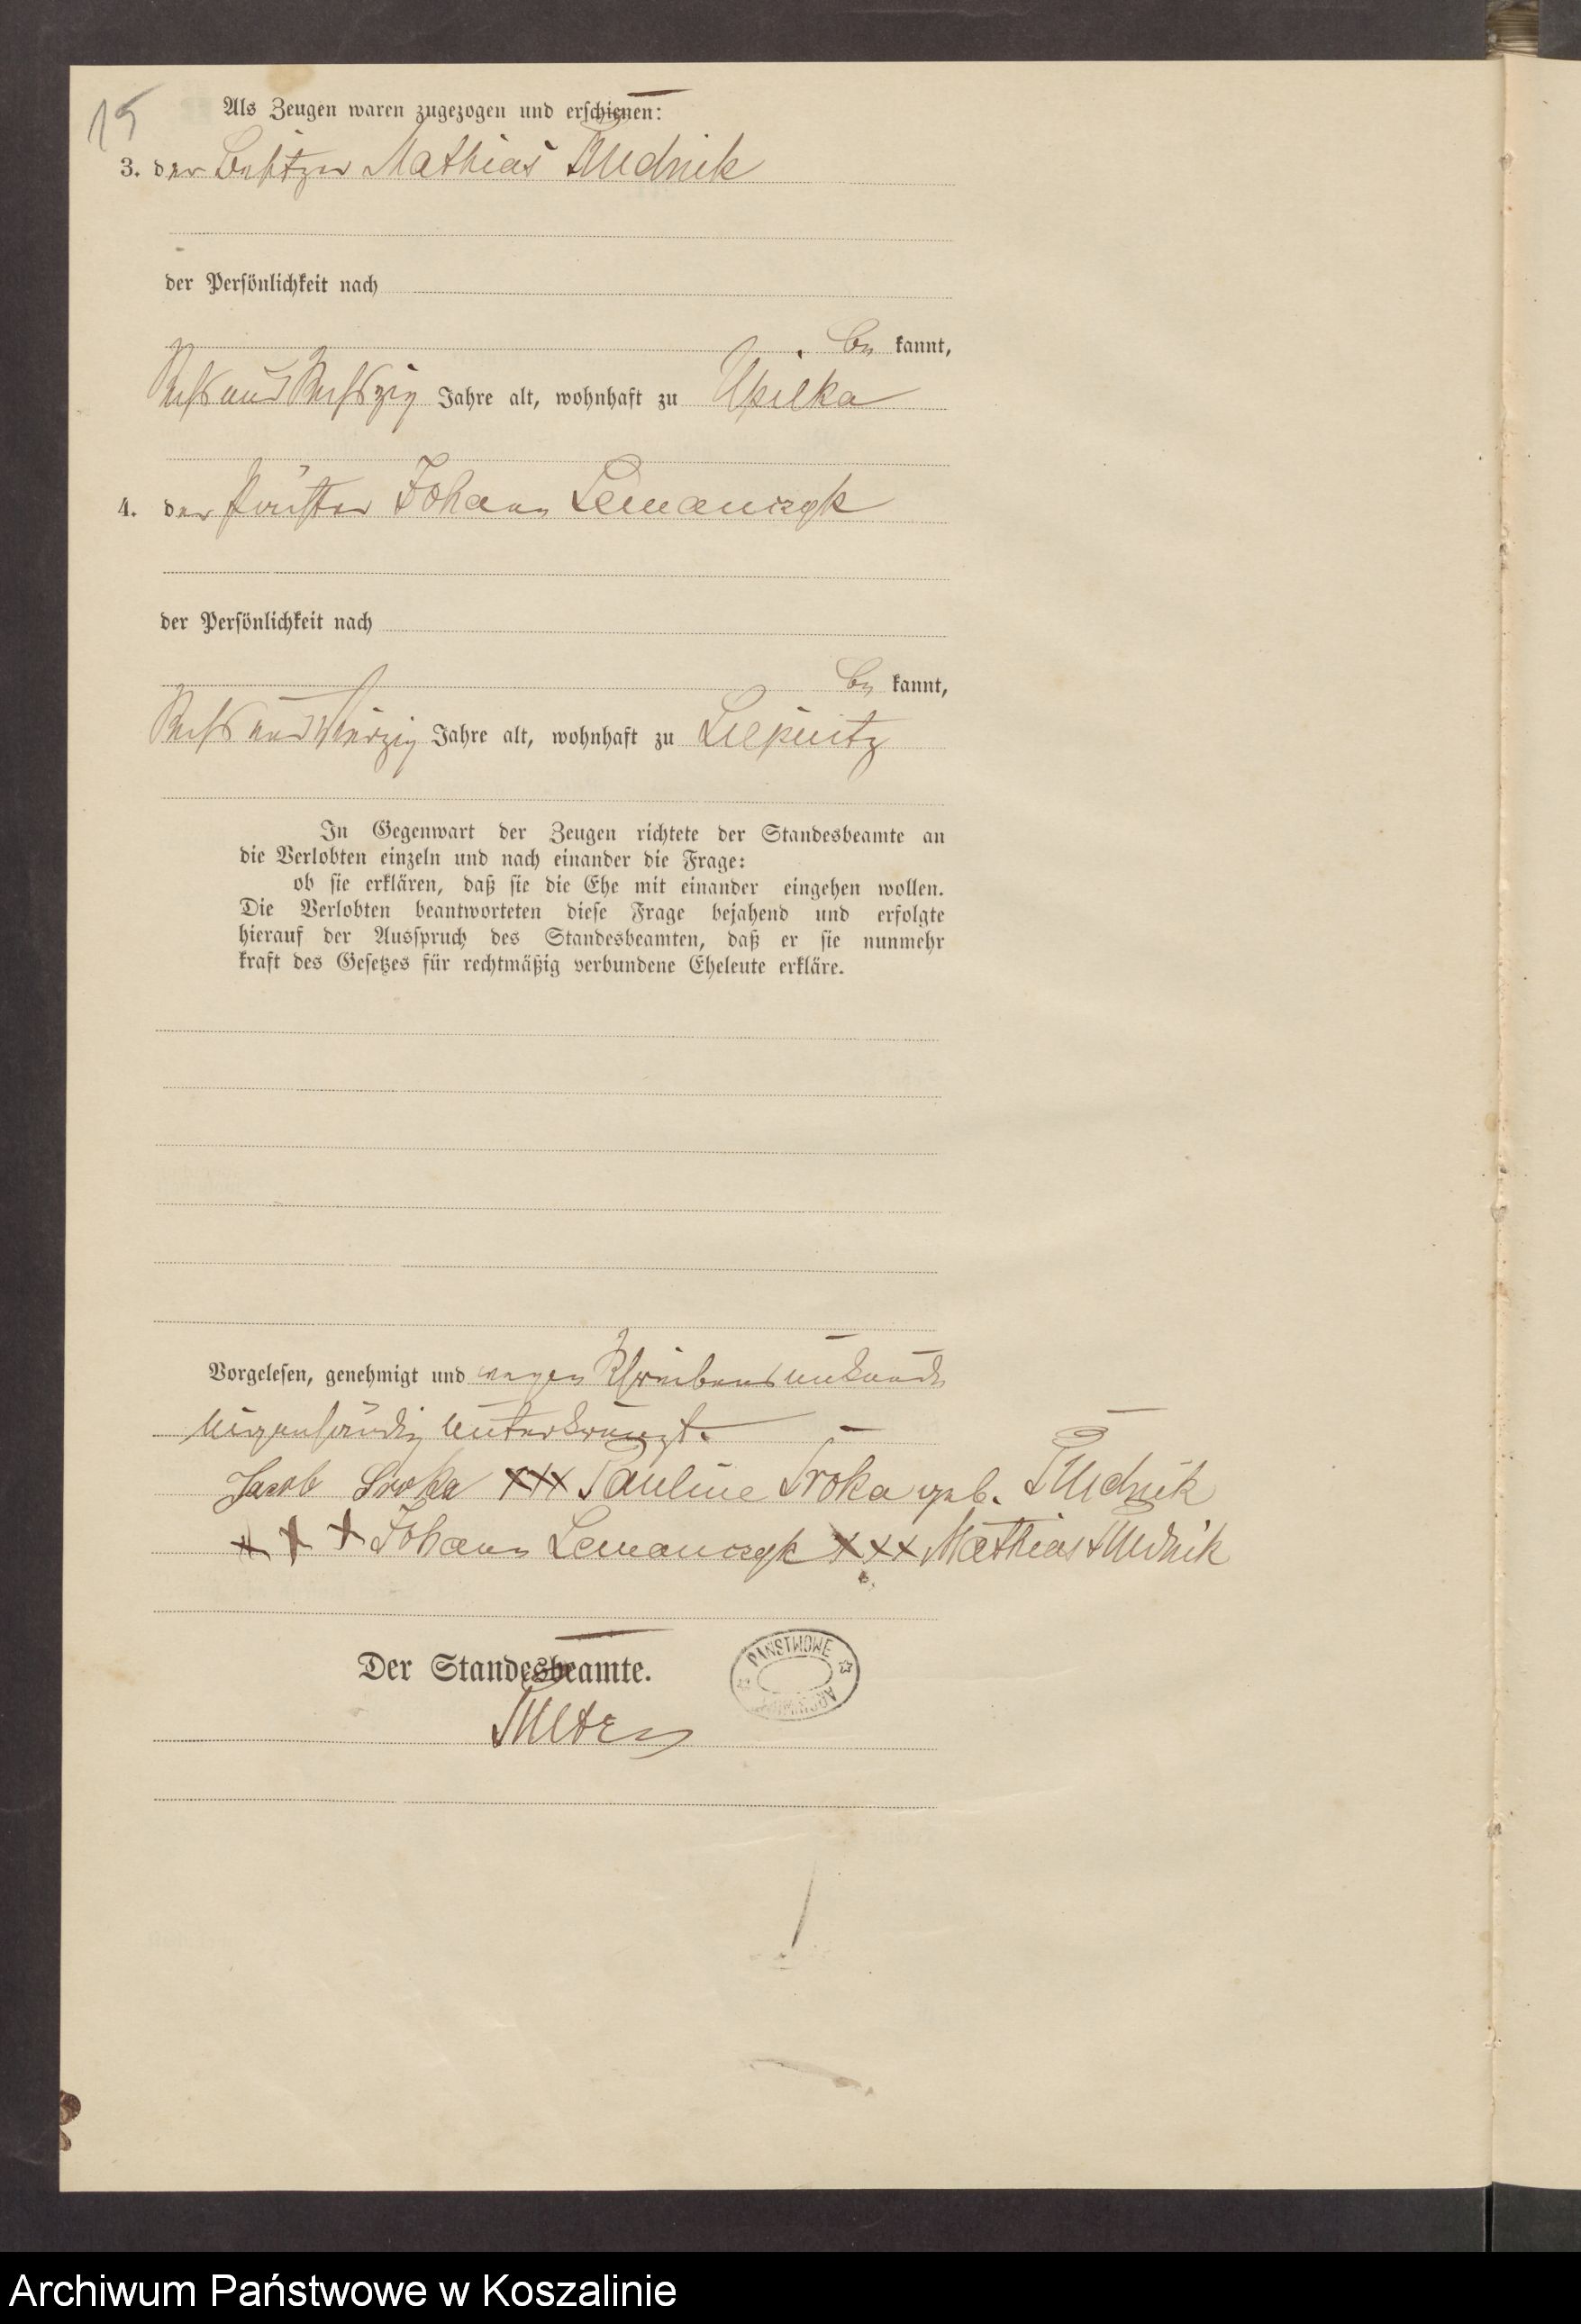 15
Als Zeugen waren zugezogen und erschienen:
3. der Besitzer Mathias Rudnik
der Persönlichkeit nach
be kannt,
sechs und sechszig Jahre alt, wohnhaft zu Upilka
4. der Förster Johann Lemanczyk
der Persönlichkeit nach
be kannt,
sechs und vierzig Jahre alt, wohnhaft zu Liepnitz
In Gegenwart der Zeugen richtete der Standesbeamte an
die Verlobten einzeln und nach einander die Frage:
ob sie erklären, daß sie die Ehe mit einander eingehen wollen.
Die Verlobten beantworteten diese Frage bejahend und erfolgte
hierauf der Ausspruch des Standesbeamten, daß er sie nunmehr
kraft des Gesetzes für rechtmäßig verbundene Eheleute erkläre.
Vorgelesen, genehmigt und wegen Schreibensunkunde
eigenhändig unterkreuzt.
Jacob Sroka XXX Pauline Sroka geb. Rudnik
XXX Johann Lemanczyk XXX Mathias Rudnik
Der Standesbeamte.
PAŃSTWOWE
ARCHIWUM
Archiwum Państwowe w Koszalinie